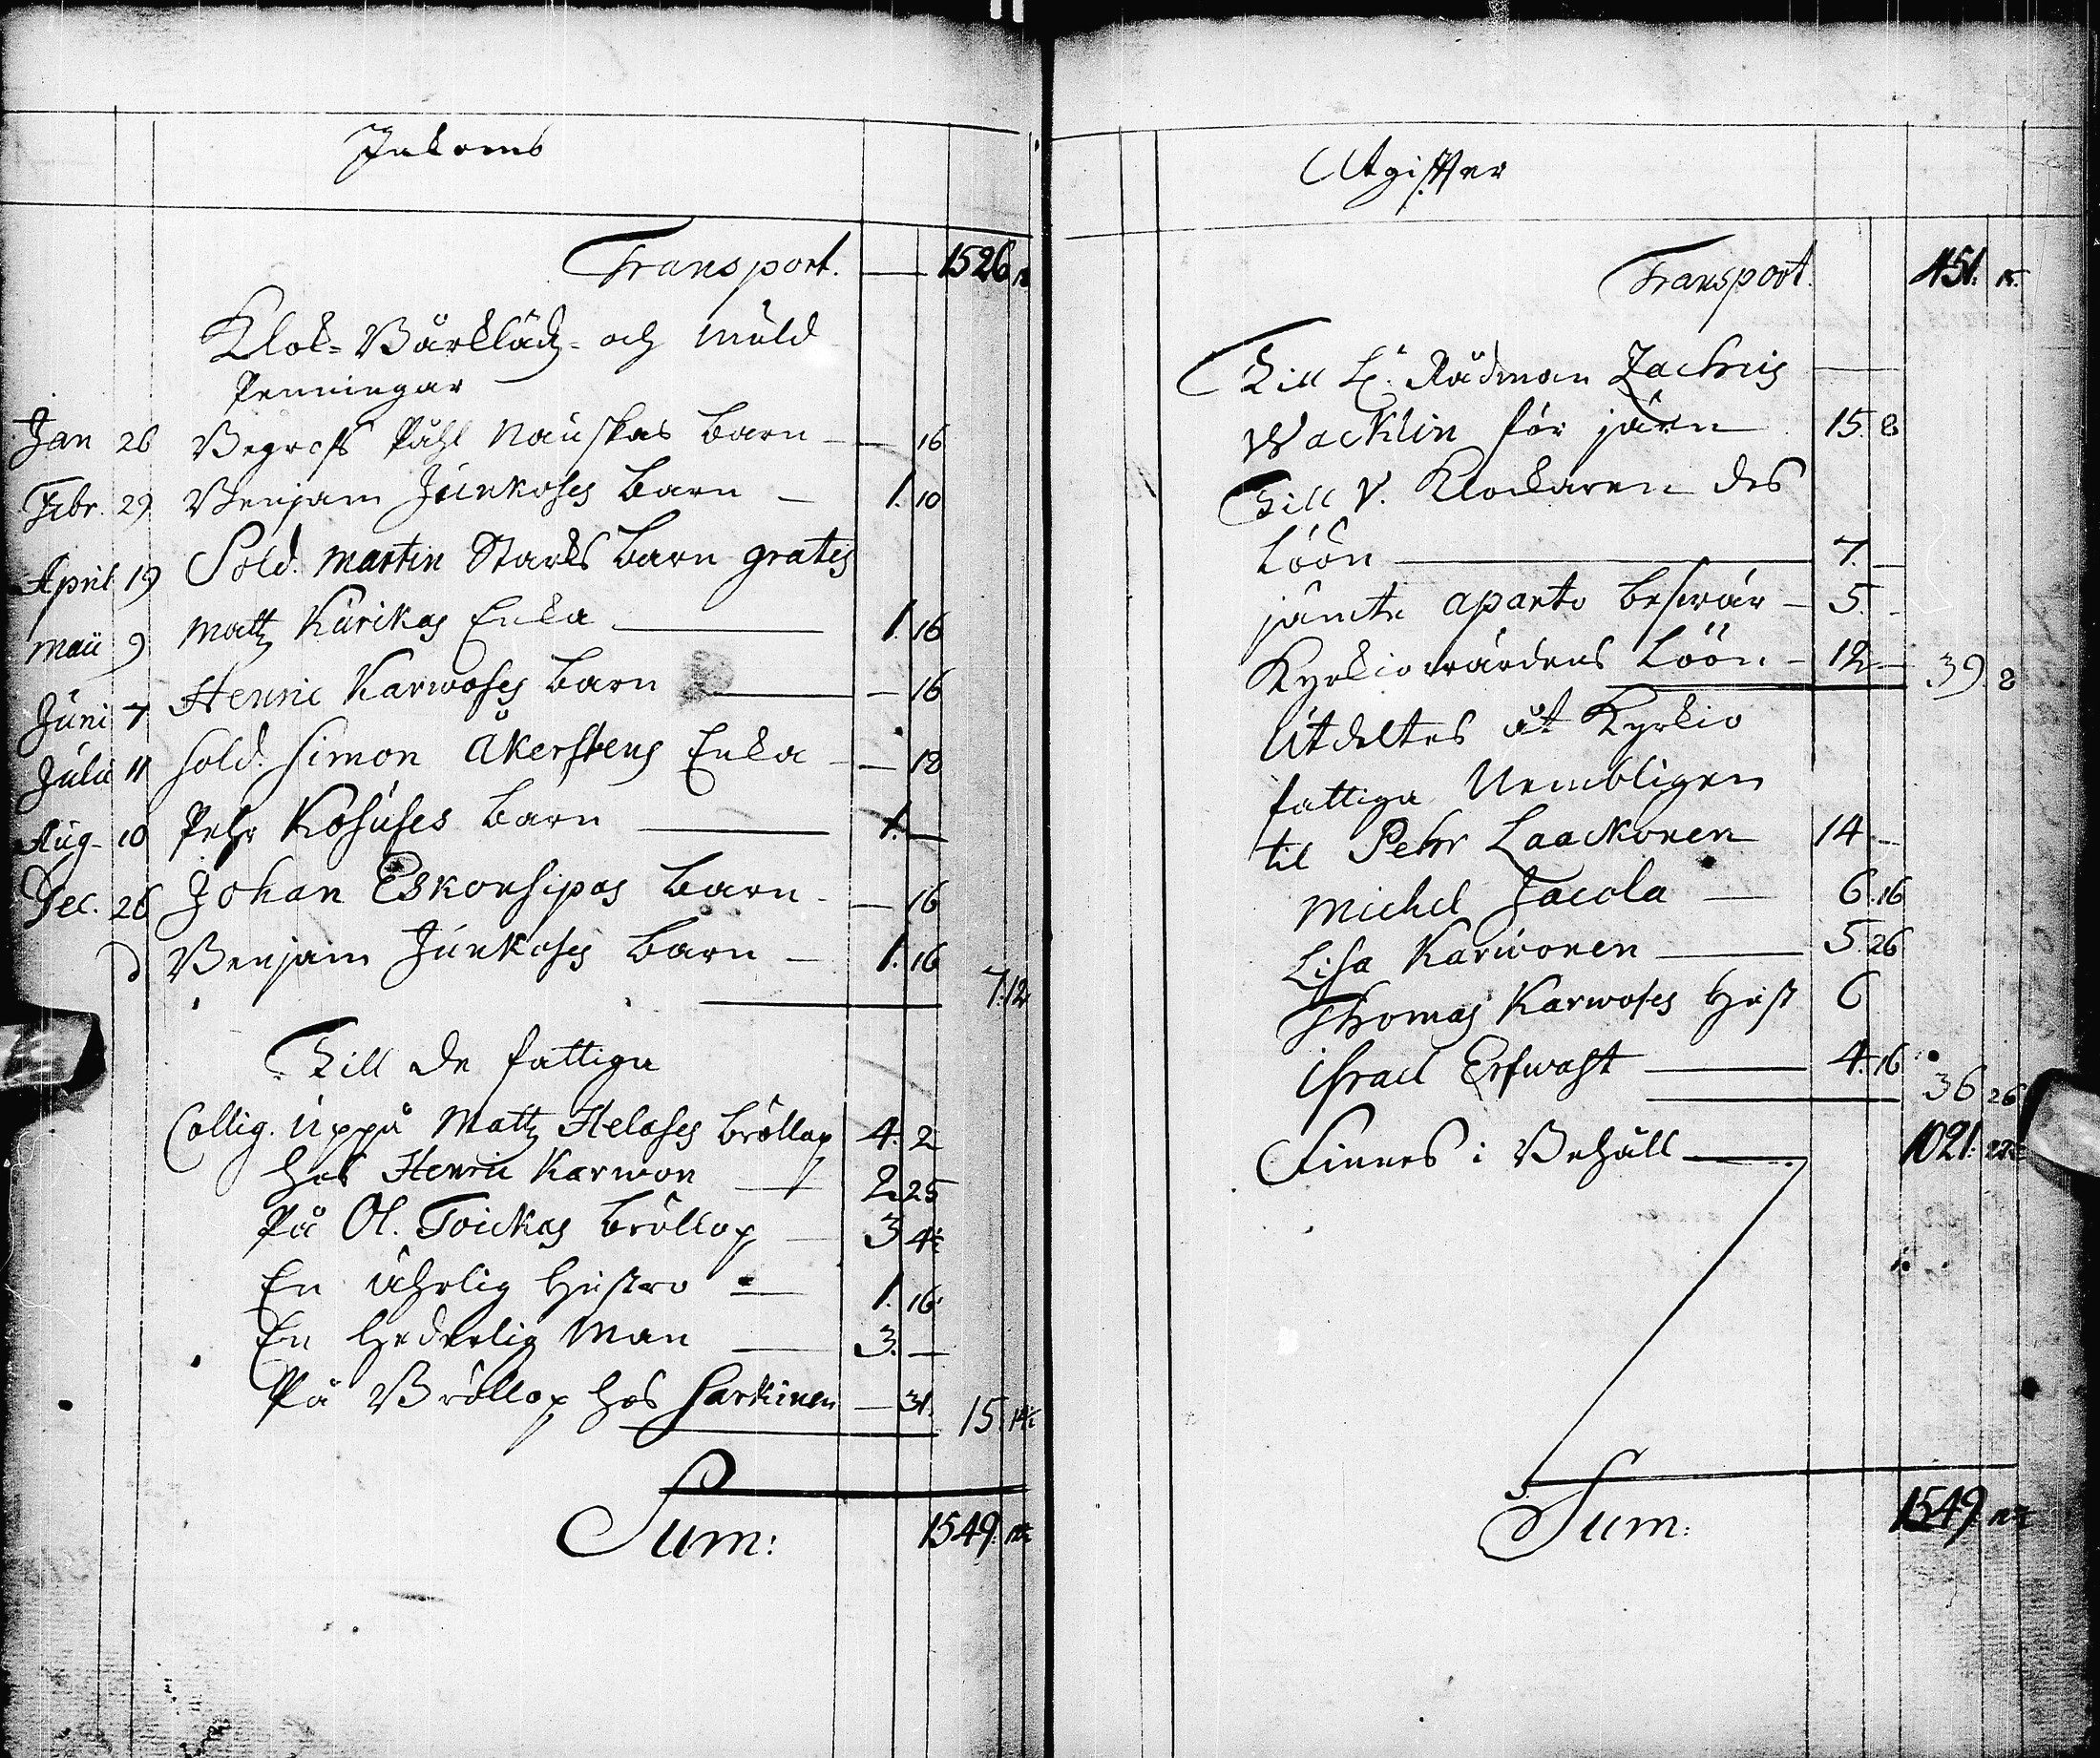 Inkoms
Transport. — 1526 12
Klok= Bårkläds= och Muld
Penningar
Jan 26 Begrofs Påhl Nauskas barn — — 16
Febr. 29 Benjam Junkoses barn — 1. 10
April 19 Sold. Martin Starks barn gratis
Maii 9 Matts Kurikas Enka — 1. 16
Juni 7 Henric Karwoses barn — — 16
Julii 11 Sold. Simon Åkerstens Enka — — 18
Aug. 10 Pehr Kosuses barn — 1. —
Dec. 26 Johan Eskonsipas barn — — 16
d Benjam Junkoses barn — 1. 16
7. 12
Till de fattiga
Collig. uppå Matts Helases bröllop 4. 2
hos Henric Karwon — 2. 25
På Ol. Toickas bröllop — 3 4½
En ährlig hustro — 1. 16
En hederlig Man — 3. —
På Bröllop hos Sarkinen — 31. 15. 14½
Sum: 1549.
Utgiffter
Transport. 451. 15.
Till H. Rådman Zachris —
Wacklin för järn 15. 8
Till V. Klockaren des
Löön — 7. —
jämte aparte beswär — 5. -
Kyrkiowärdens Löön — 12 — 39. 8
Utdeltes åt Kyrkio
fattiga Nembligen
til Pehr Laackonen 14 —
Michel Jacola — 6. 16
Lisa Karwonen — 5. 26
Thomas Karwoses Hust 6
Israel Erfwast — 4. 16
36 26
Finnes i Behåll — 1021.
Sum: 1549.